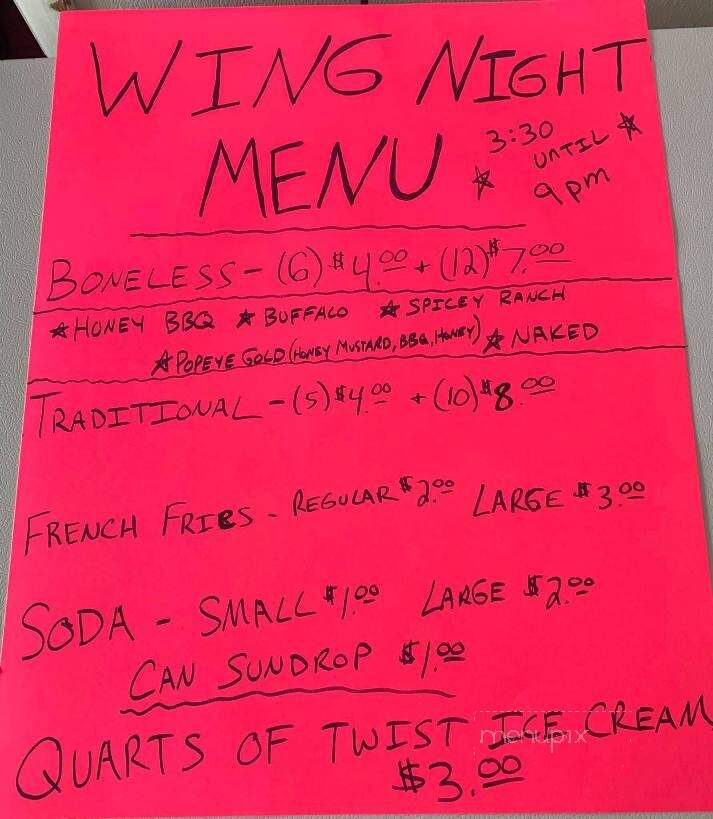 WING NIGHT
MENU
3:30
UNTIL
9pm
BONELESS - (6) $4.00 + (12) $7.00
HONEY BBQ BUFFALO SPICEY RANCH
POPEYE GOLD (HONEY MUSTARD, BBQ, HONEY) NAKED
TRADITIONAL - (5) $4.00 + (10) $8.00
FRENCH FRIES - REGULAR $2.00 LARGE $3.00
SODA - SMALL $1.00 LARGE $2.00
CAN SUNDROP $1.00
QUARTS OF TWIST ICE CREAM
$3.00
menupix